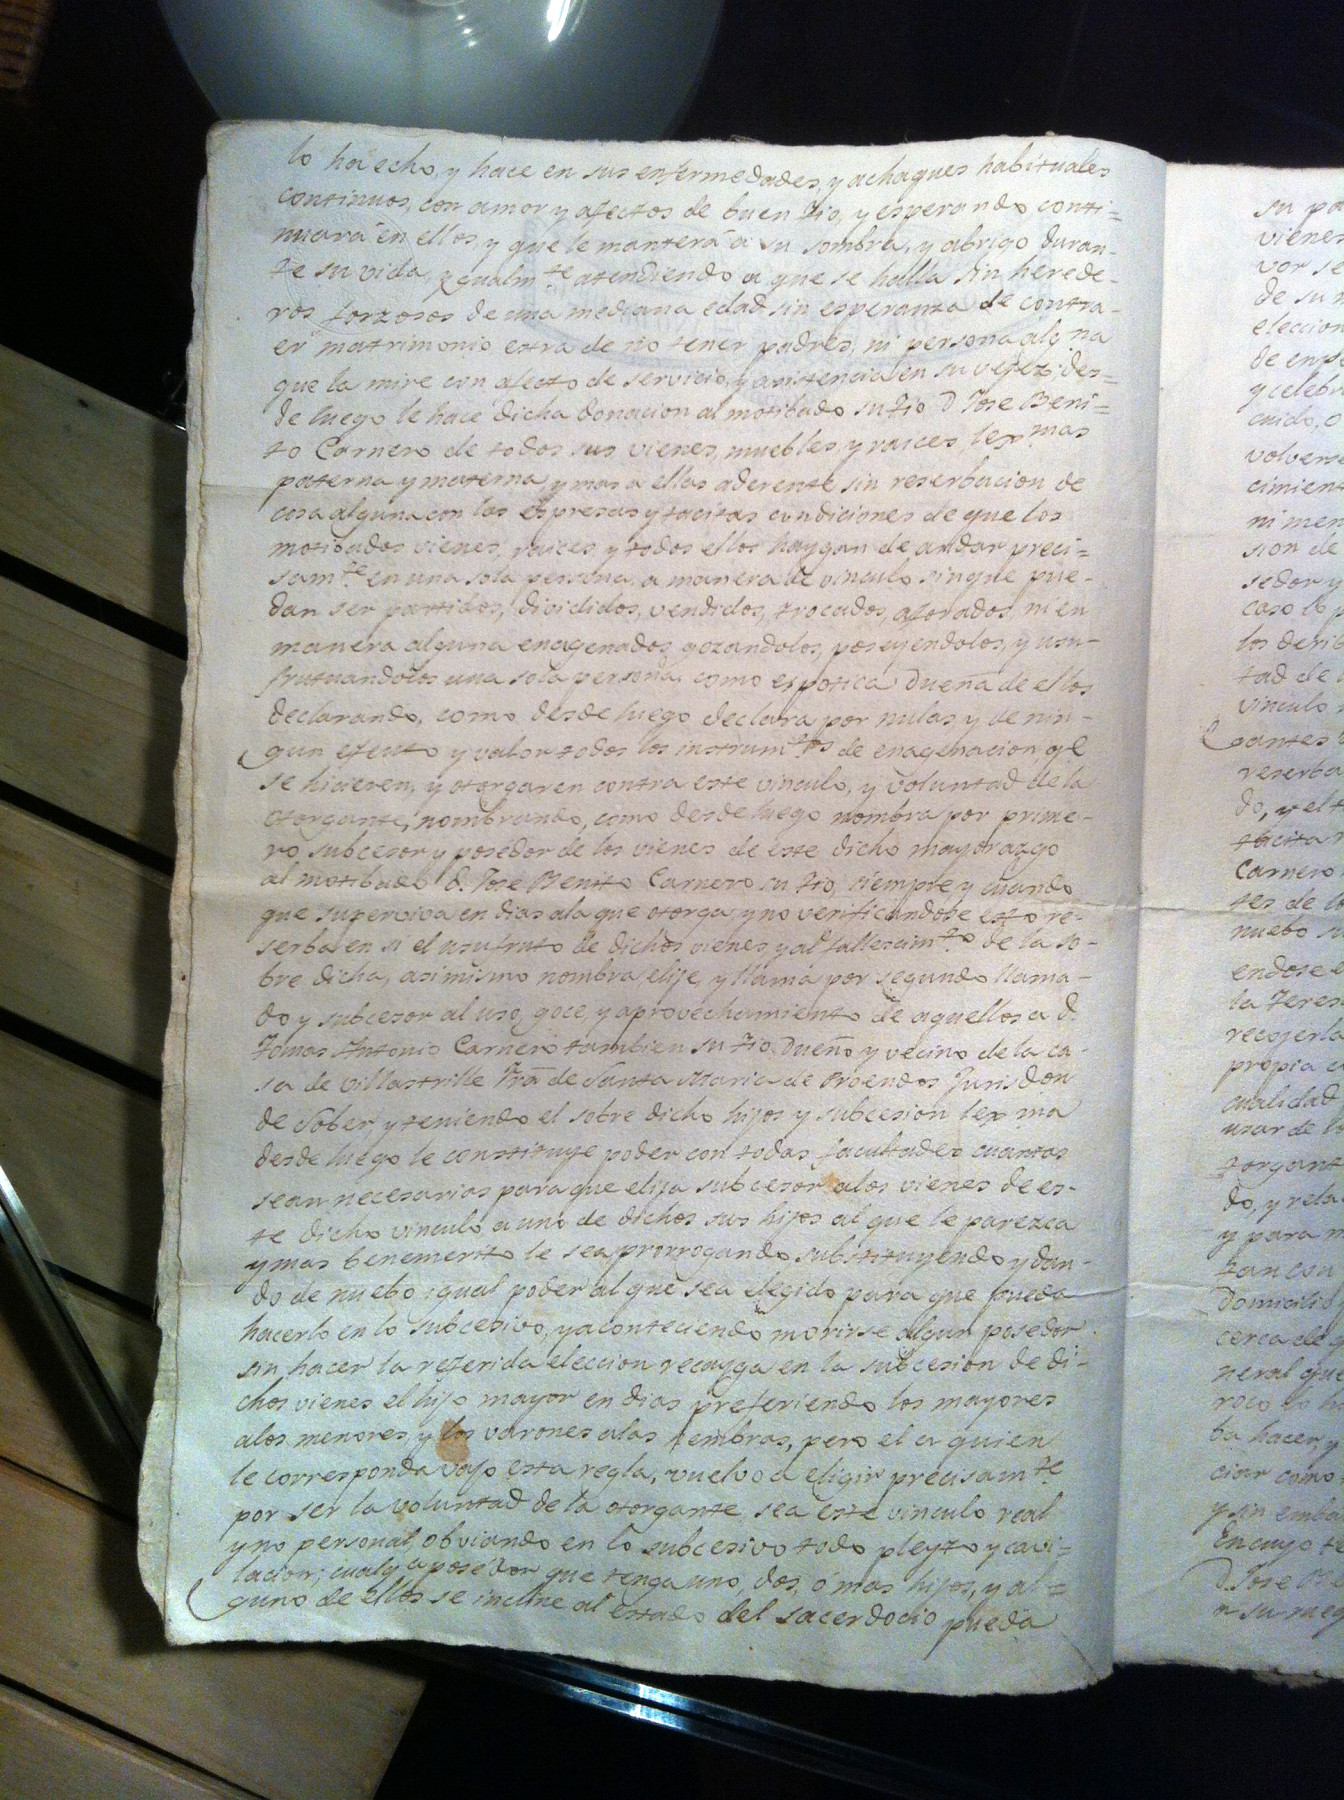 lo ha echo, y hace en sus enfermedades, y achaques habituales
continuos, con amor y afectos de buen tio, y esperando conti=
nuará en ellos, y que le manterá a su sombra, y abrigo duran-
te su vida, y gualm.te atendiendo a que se halla sin herede-
ros forzosos de una mediana edad sin esperanza de contra-
er matrimonio extra de no tener padres, ni persona alg na
que la mire con afecto de servicio, y asistencia en su vejez; des=
de luego le hace dicha donacion al motibado su tio D Jose Beni=
to Carnero de todos sus vienes, muebles, y raices, lex.mas
paterna y materna, y mas a ellas aderente sin reserbacion de
cosa alguna con las espresas y tacitas condiciones de que los
motibados vienes, raices y todos ellos haygan de andar preci=
sam.te en una sola persona, a manera de vinculo sin que pue-
dan ser partidos, divididos, vendidos, trocados, aforados, ni en
manera alguna enagenados gozandolos, poseyendolos, y usu-
frutuandolos una sola persona, como espotica Dueña de ellos
declarando, como desde luego declara por nulas y de nin-
gun efecto y valor todos los instrum.tos de enagenacion q.e
se hicieren, y otorgaren contra este vinculo, y voluntad de la
otorgante, nombrando, como desde luego nombra por prime-
ro subcesor y posedor de los vienes de este dicho mayorazgo
al motibado D. Jose Benito Carnero su tio, siempre y cuando
que superviva en dias ala que otorga, y no verificandose esto re-
serba en si el usufruto de dichos vienes y al fallescim.to de la so-
bre dicha, asimismo nombra, elije, y llama por segundo llama-
do y subcesor al uso, goce, y aprovechamiento de aquellos a D.
Tomas Antonio Carnero tambien su tio, Dueño y vecino de la ca-
sa de Villastrille Fra de Santa Maria de Proendos Jurisdon
de Sober, y teniendo el sobre dicho hijos y subcesion lex ma
desde luego le constituye poder con todas facultades cuantas
sean necesarias para que elija subcesor alos vienes de es-
te dicho vinculo a uno de dichos sus hijos al que le parezca
y mas benemerito le sea prorrogando substituyendo y dan-
do de nuebo igual poder al que sea elegido para que pueda
hacerlo en lo subcesivo, y aconteciendo morirse algun posedor
sin hacer la referida eleccion recayga en la subcesion de di-
chos vienes el hijo mayor en dias prefiriendo los mayores
alos menores, y los varones alas hembras, pero el a quien
le corresponda vajo esta regla, vuelvo a eligir precisam.te
por ser la voluntad de la otorgante sea este vinculo real
y no personal, obviando en lo subcesivo todo pleyto y cavi=
lacion; cualq.a posedor que tenga uno, dos, ó mas hijos, y al=
guno de ellos se incline al estado del sacerdocio pueda
su pa
vienes
vor se
de su
eleccion
y celebr
cuido, o
volverse
cimient
ni men
sion de
sedor y
caso lo
los deri
tad de
vinculo
gantes
reserba
do, y el t
tacita
Carnero
tes de l
nuebo su
endose e
la Teres
recojerla
propia c
cualidad
usar de lo
torgant
do, y rela
y para m
Domicilio
cerca de
neral que
ba hacer, y
ciar como
y sin emba
En cuyo te
D. Jose Be